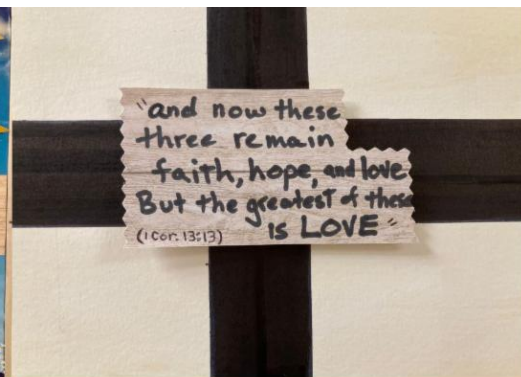 "and now these
three remain
faith, hope, and love
But the greatest of these
is LOVE"
(1 Cor. 13:13)